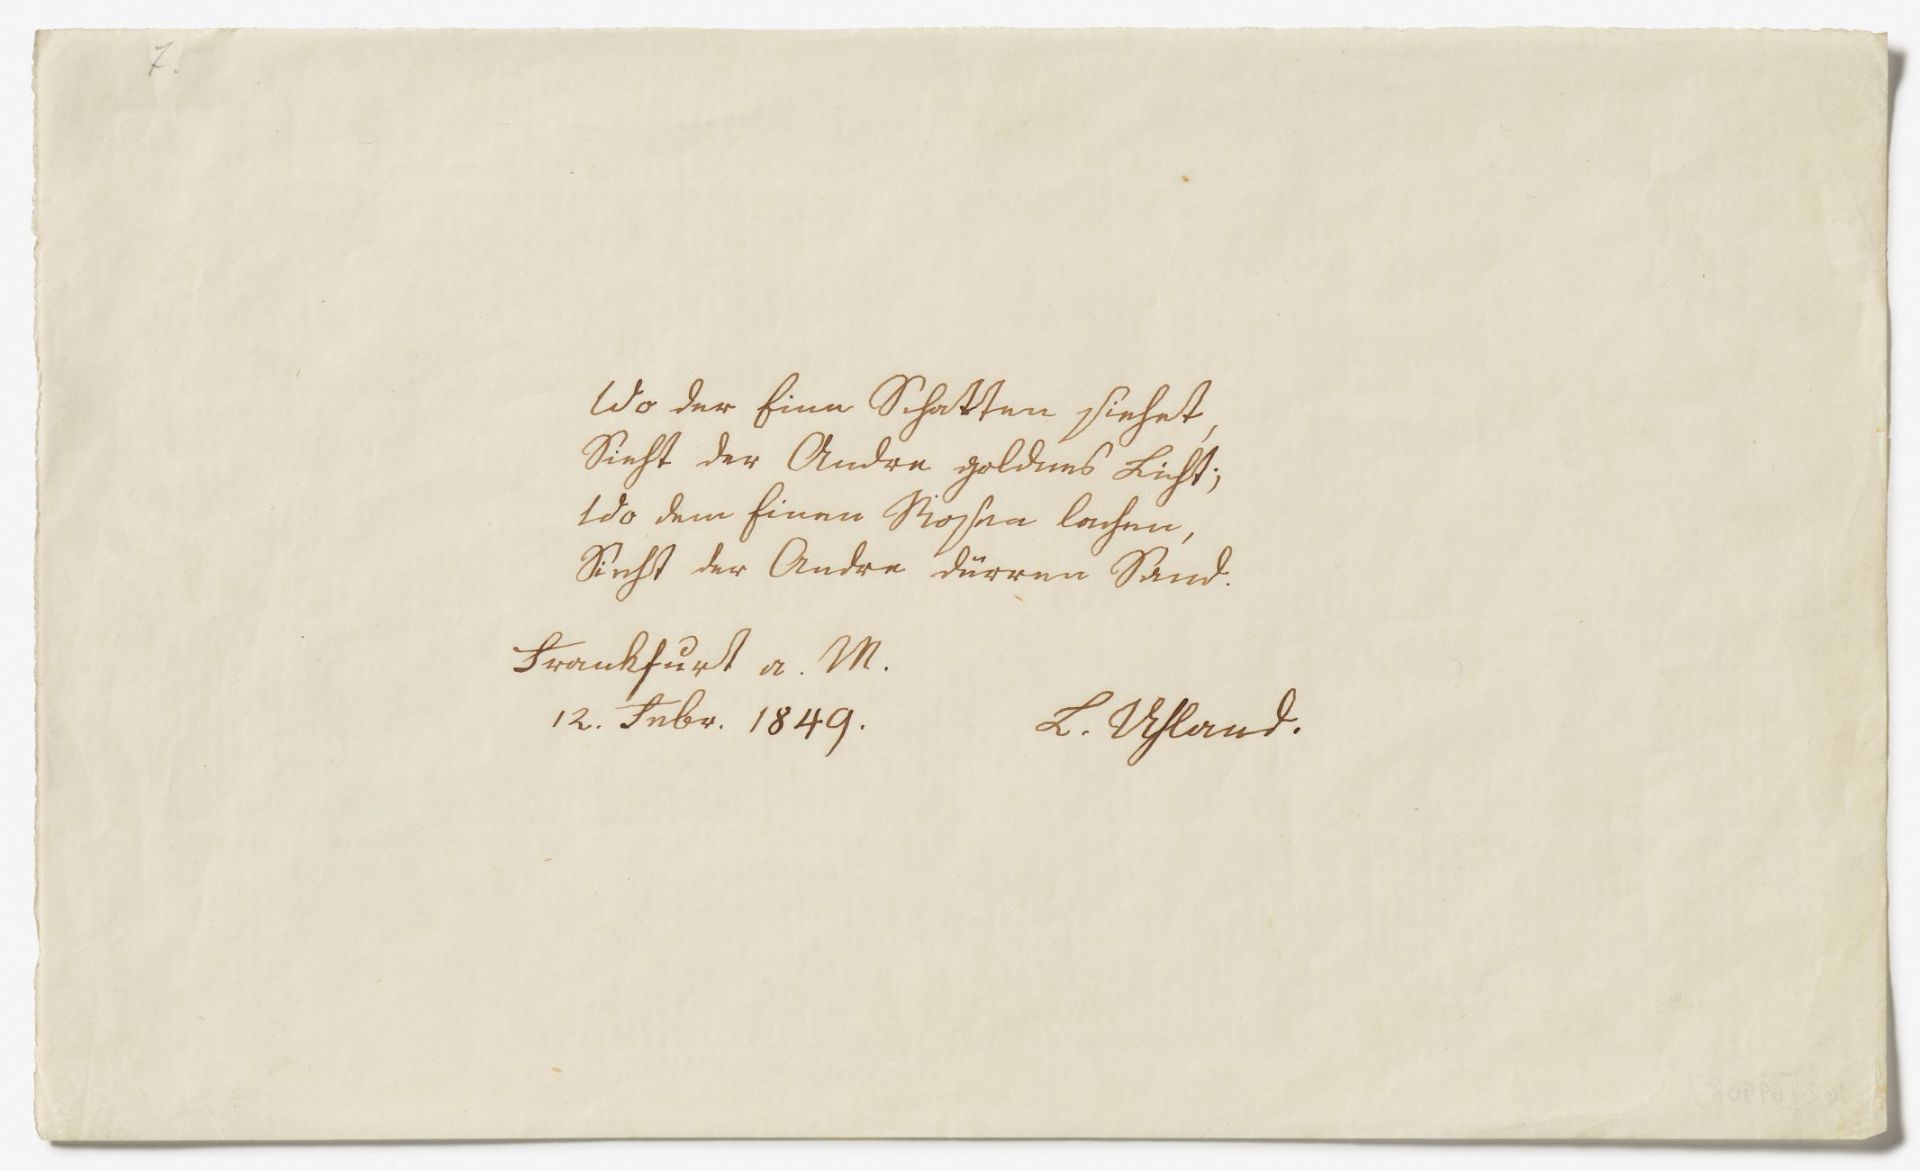 7.
Wo der Eine Schatten siehet,
Sieht der Andre goldnes Licht;
Wo dem Einen Rosen lachen,
Sieht der Andre dürren Sand.
Frankfurt a. M.
12. Febr. 1849.
L. Uhland.